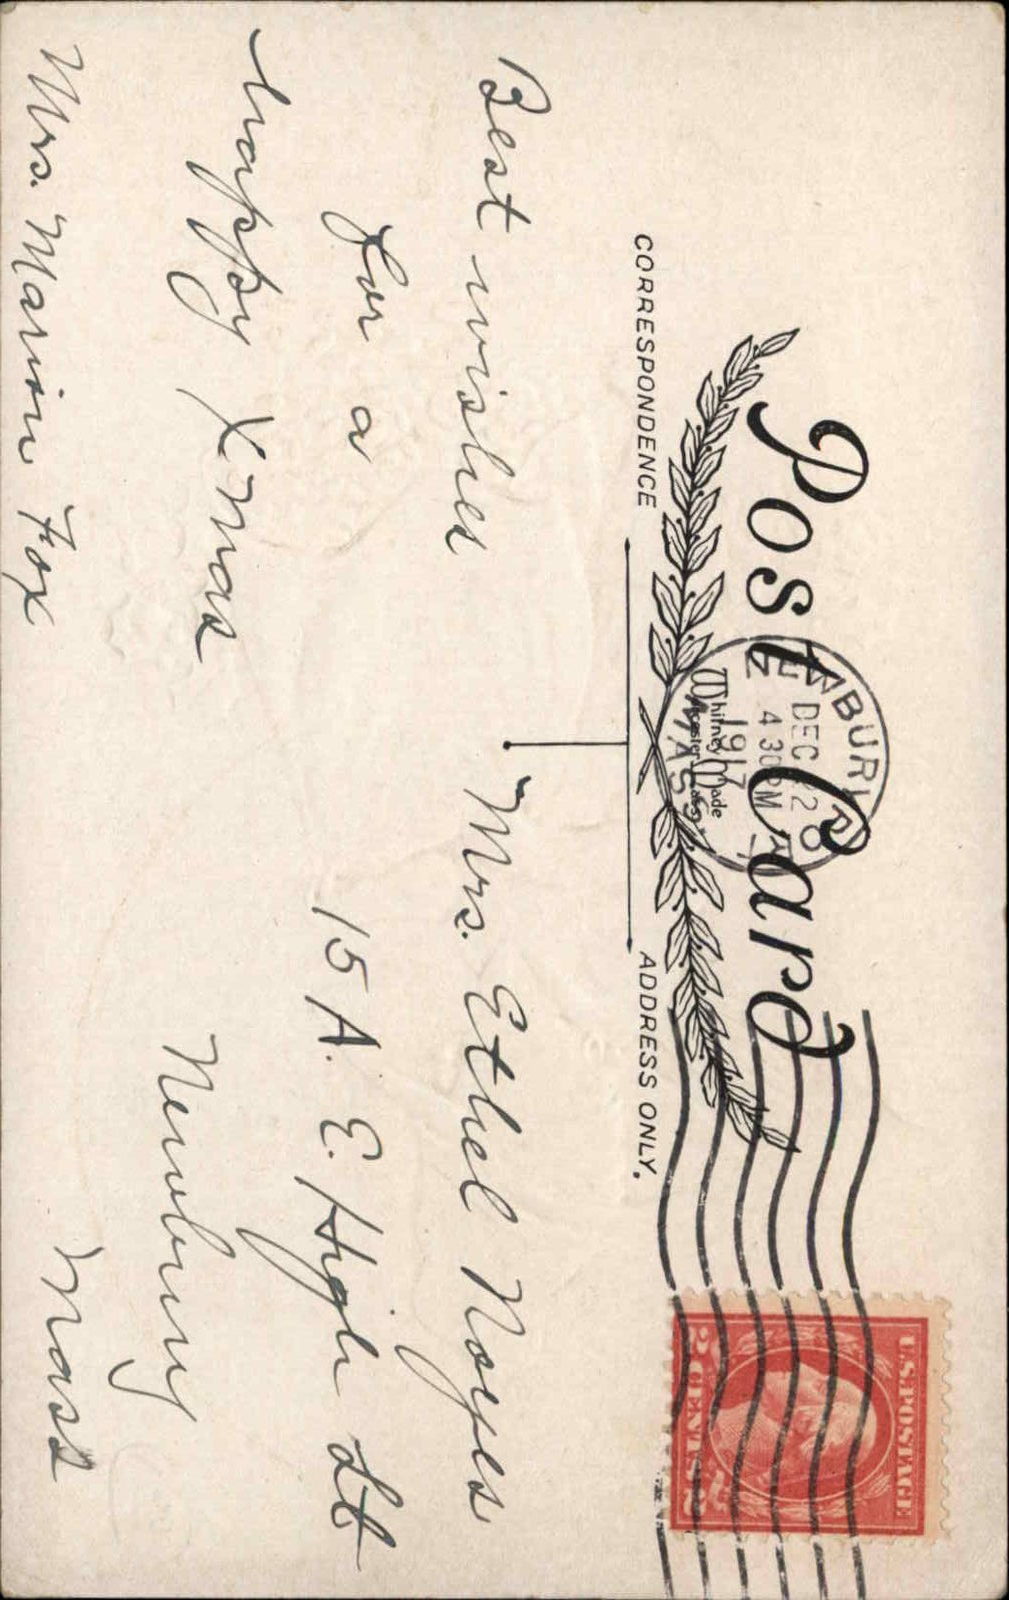 Post Card
CORRESPONDENCE
ADDRESS ONLY.
NEWBURYP
DEC 2
4 30 PM
1917
MASS.
Whitney Made
Worcester, Mass
U.S. POSTAGE
2 CENTS 2
Best wishes
for a
happy XMas
Mrs. Marion Fox
Mrs. Ethel Noyes
15 A. E. High St
Newbury
Mass